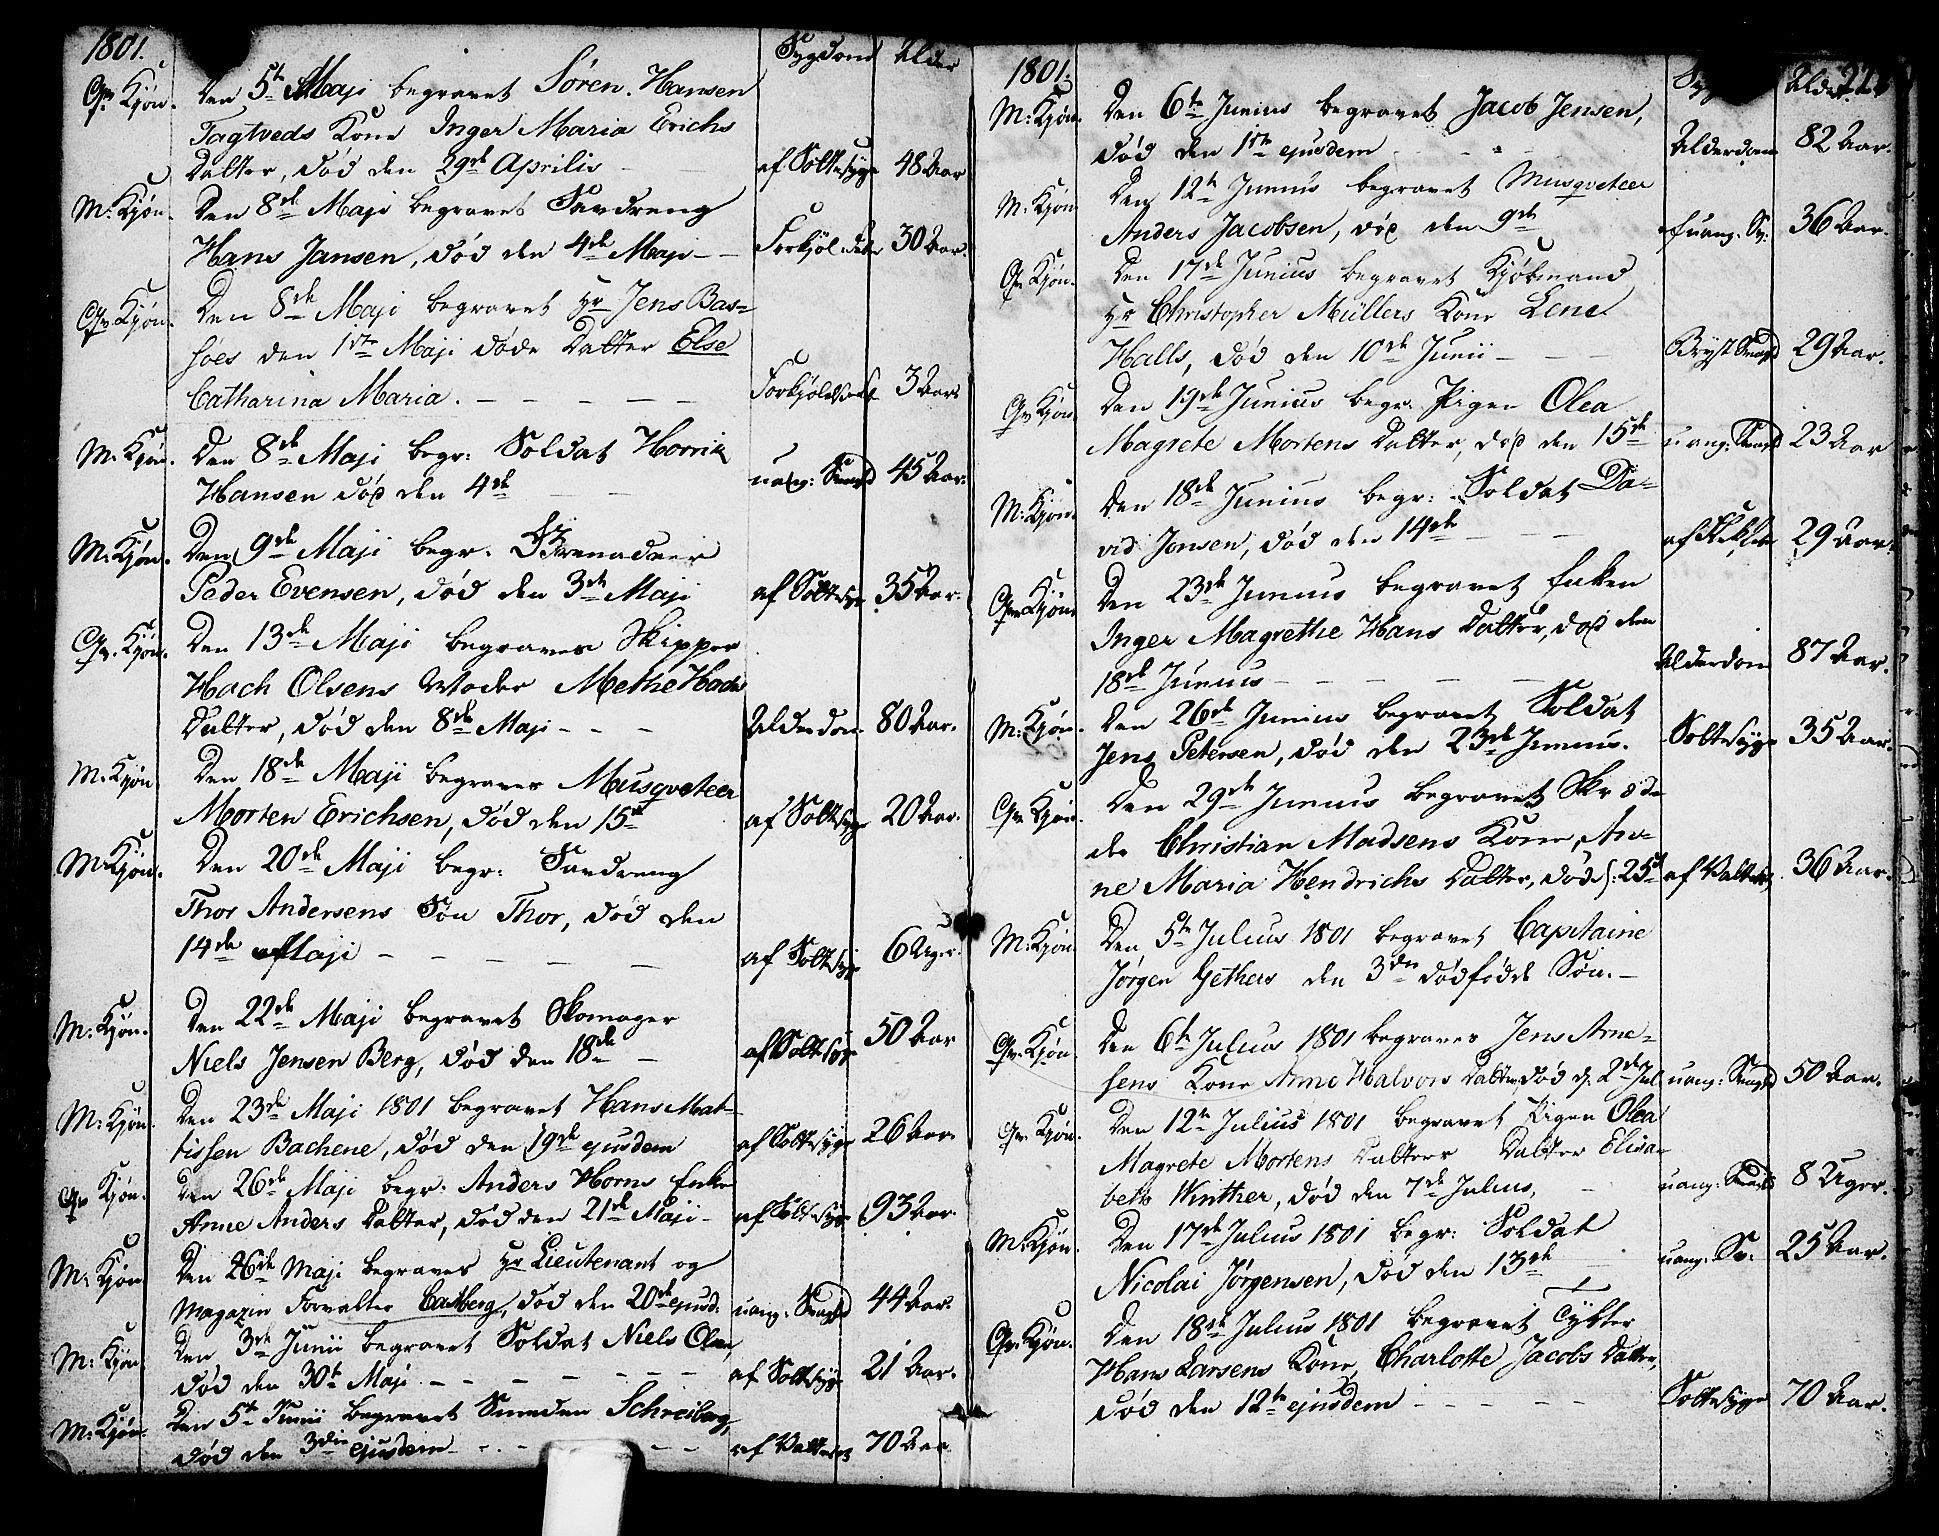 1801.
Sygdom Alder
Qv. Kjøn. Den 5te Maji begravet Søren Hansen
Tagtveds Kone Inger Maria Erichs
Datter, død den 29de Aprilis af Sottesyge 48 Aar
M: Kjøn. Den 8de Maji begravet
Hans Jansen, død den 4de Maji - - 30 Aar.
Qv. Kjøn. Den 8de Maji begravet Hr Jens Bas=
søes den 1ste Maji døde Datter Else
Catharina Maria. - - - - - 3 Aar
M: Kjøn. Den 8de Maji begr: Soldat Henrik
Hansen død den 4de - - uang: Svagd 45 Aar.
M: Kjøn. Den 9de Maji begr.
Peder Evensen, død den 3de Maji af Sottesyge 35 Aar.
Qv. Kjøn. Den 13de Maji begraven Skipper
Hach Olsens Moder Methe Hachs
Datter, død den 8de Maji - - - Alderdom. 80 Aar.
M. Kjøn Den 18de Maji begraven Musqveteer
Morten Erichsen, død den 15de af Sottesyge 20 Aar.
M: Kjøn. Den 20de Maji begr:
Thor Andersens Søn Thor, død den
14de Maji - - - - - af Sottesyge 6 Uger.
M: Kjøn. Den 22de Maji begravet Skomager
Niels Jensen Berg, død den 18de - af Sottesyge 50 Aar
M: Kjøn. Den 23de Maji 1801 begravet Hans Mat=
tissen Bachene, død den 19de ejusdem af Sottesyge 26 Aar.
Qv Kjøn. Den 26de Maji begr: Anders Horns Enke
Anne Anders Datter, død den 21de Maji - af Sottesyge 93 Aar.
M: Kjøn Den 26de Maji begraven Hr Lieutenant og
Magazin Forvalter død den 20de ejusd: uang: Svagd 44 Aar.
M: Kjøn. Den 3de Junii begravet Soldat Niels Olsen,
død den 30te Maji - - - - - - af Sottesyge 21 Aar.
M: Kjøn. Den 5te Junii begravet Smeden Schreiberg,
død den 3die ejusdem - - - - - 70 Aar.
1801. Alder
M: Kjøn. Den 6te Junius begravet Jacob Jensen,
død den 1ste ejusdem - - - Alderdom 82 Aar.
M: Kjøn Den 12te Junius begravet Musqveteer
Anders Jacobsen, død den 9de uang. Sv: 36 Aar.
Qv. Kjøn. Den 17de Junius begravet Kjøbmand
Hr Christopher Müllers Kone Lene
Halls, død den 10de Junii - - - Bryst Svagd 29 Aar.
Qv Kjøn. Den 19de Junius begr. Pigen Olea
Magrete Mortens Datter, død den 15de uang: Svagd 23 Aar
M: Kjøn. Den 18de Junius begr: Soldat Da=
vid Jonsen, død den 14de - - - 29 Aar.
Qv Kjøn Den 23de Junius begravet Enken
Inger Magrethe Hans Datter, død den
18de Junius - - - - - Alderdom 87 Aar.
M: Kjøn. Den 26de Junius begravet Soldat
Jens Petersen, død den 23de Junius. Sottesyge 35 Aar.
Qv Kjøn. Den 29de Junius begravet Skræde=
der Christian Madsens Kone, An=
ne Maria Hendrichs Datter, død d: 25de 36 Aar.
M: Kjøn. Den 5te Julius 1801 begravet Capitaine
Jørgen Gethers den 3die dødfødde Søn. -
Qv. Kjøn. Den 6te Julius 1801 begraven Jens Arne=
sens Kone Anne Halvors Datter, død d. 2den Jul uang: Svagd 50 Aar.
Qv Kjøn. Den 12te Julius 1801 begravet Pigen Olea
Magrete Mortens Datters Datter Elisa=
beth Winther, død den 7de Julius, - uang: Svagd 8 Uger.
M: Kjøn. Den 17de Julius 1801 begr: Soldat
Nicolai Jørgensen, død den 13de uang: Sv: 25 Aar.
Qv. Kjøn. Den 18de Julius 1801 begravet Tykker
Hans Larsens Kone, Charlotte Jacobs Datter,
død den 12te ejusdem - - - - - Sottesyge 70 Aar.